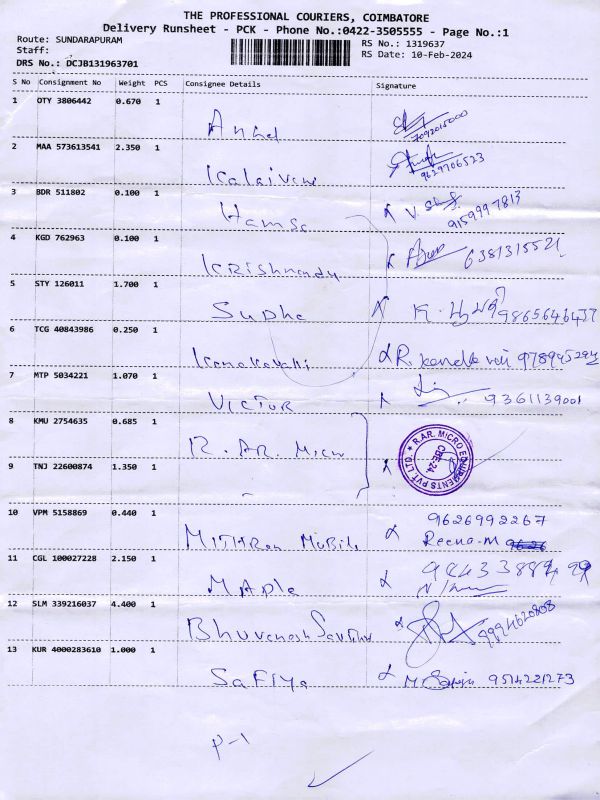 THE PROFESSIONAL COURIERS, COIMBATORE
Delivery Runsheet - PCK - Phone No.:0422-3505555 - Page No.:1
Route: SUNDARAPURAM
RS No.: 1319637
Staff:
RS Date: 10-Feb-2024
DRS No.: DCJB131963701
S No Consignment No Weight PCS Consignee Details Signature
1 OTY 3806442 0.670 1
Anand
7092015000
2 MAA 573613541 2.350 1
Kalaivani
9629706523
3 BDR 511802 0.100 1
Hamsa
9159997813
4 KGD 762963 0.100 1
6381315521
5 STY 126011 1.700 1
Sudha
9865646437
6 TCG 40843986 0.250 1
R.
7 MTP 5034221 1.070 1
VICTOR 9361139001
8 KMU 2754635 0.685 1
R. AR. Micro
R.AR. MICRO EQUIPMENTS PVT. LTD.
CBE-24.
9 TNJ 22600874 1.350 1
10 VPM 5158869 0.440 1
9626992267
Mithran Mobile Reena-M
11 CGL 100027228 2.150 1
Maple
12 SLM 339216037 4.400 1
9994620808
13 KUR 4000283610 1.000 1
Safiya 9514221273
P-1